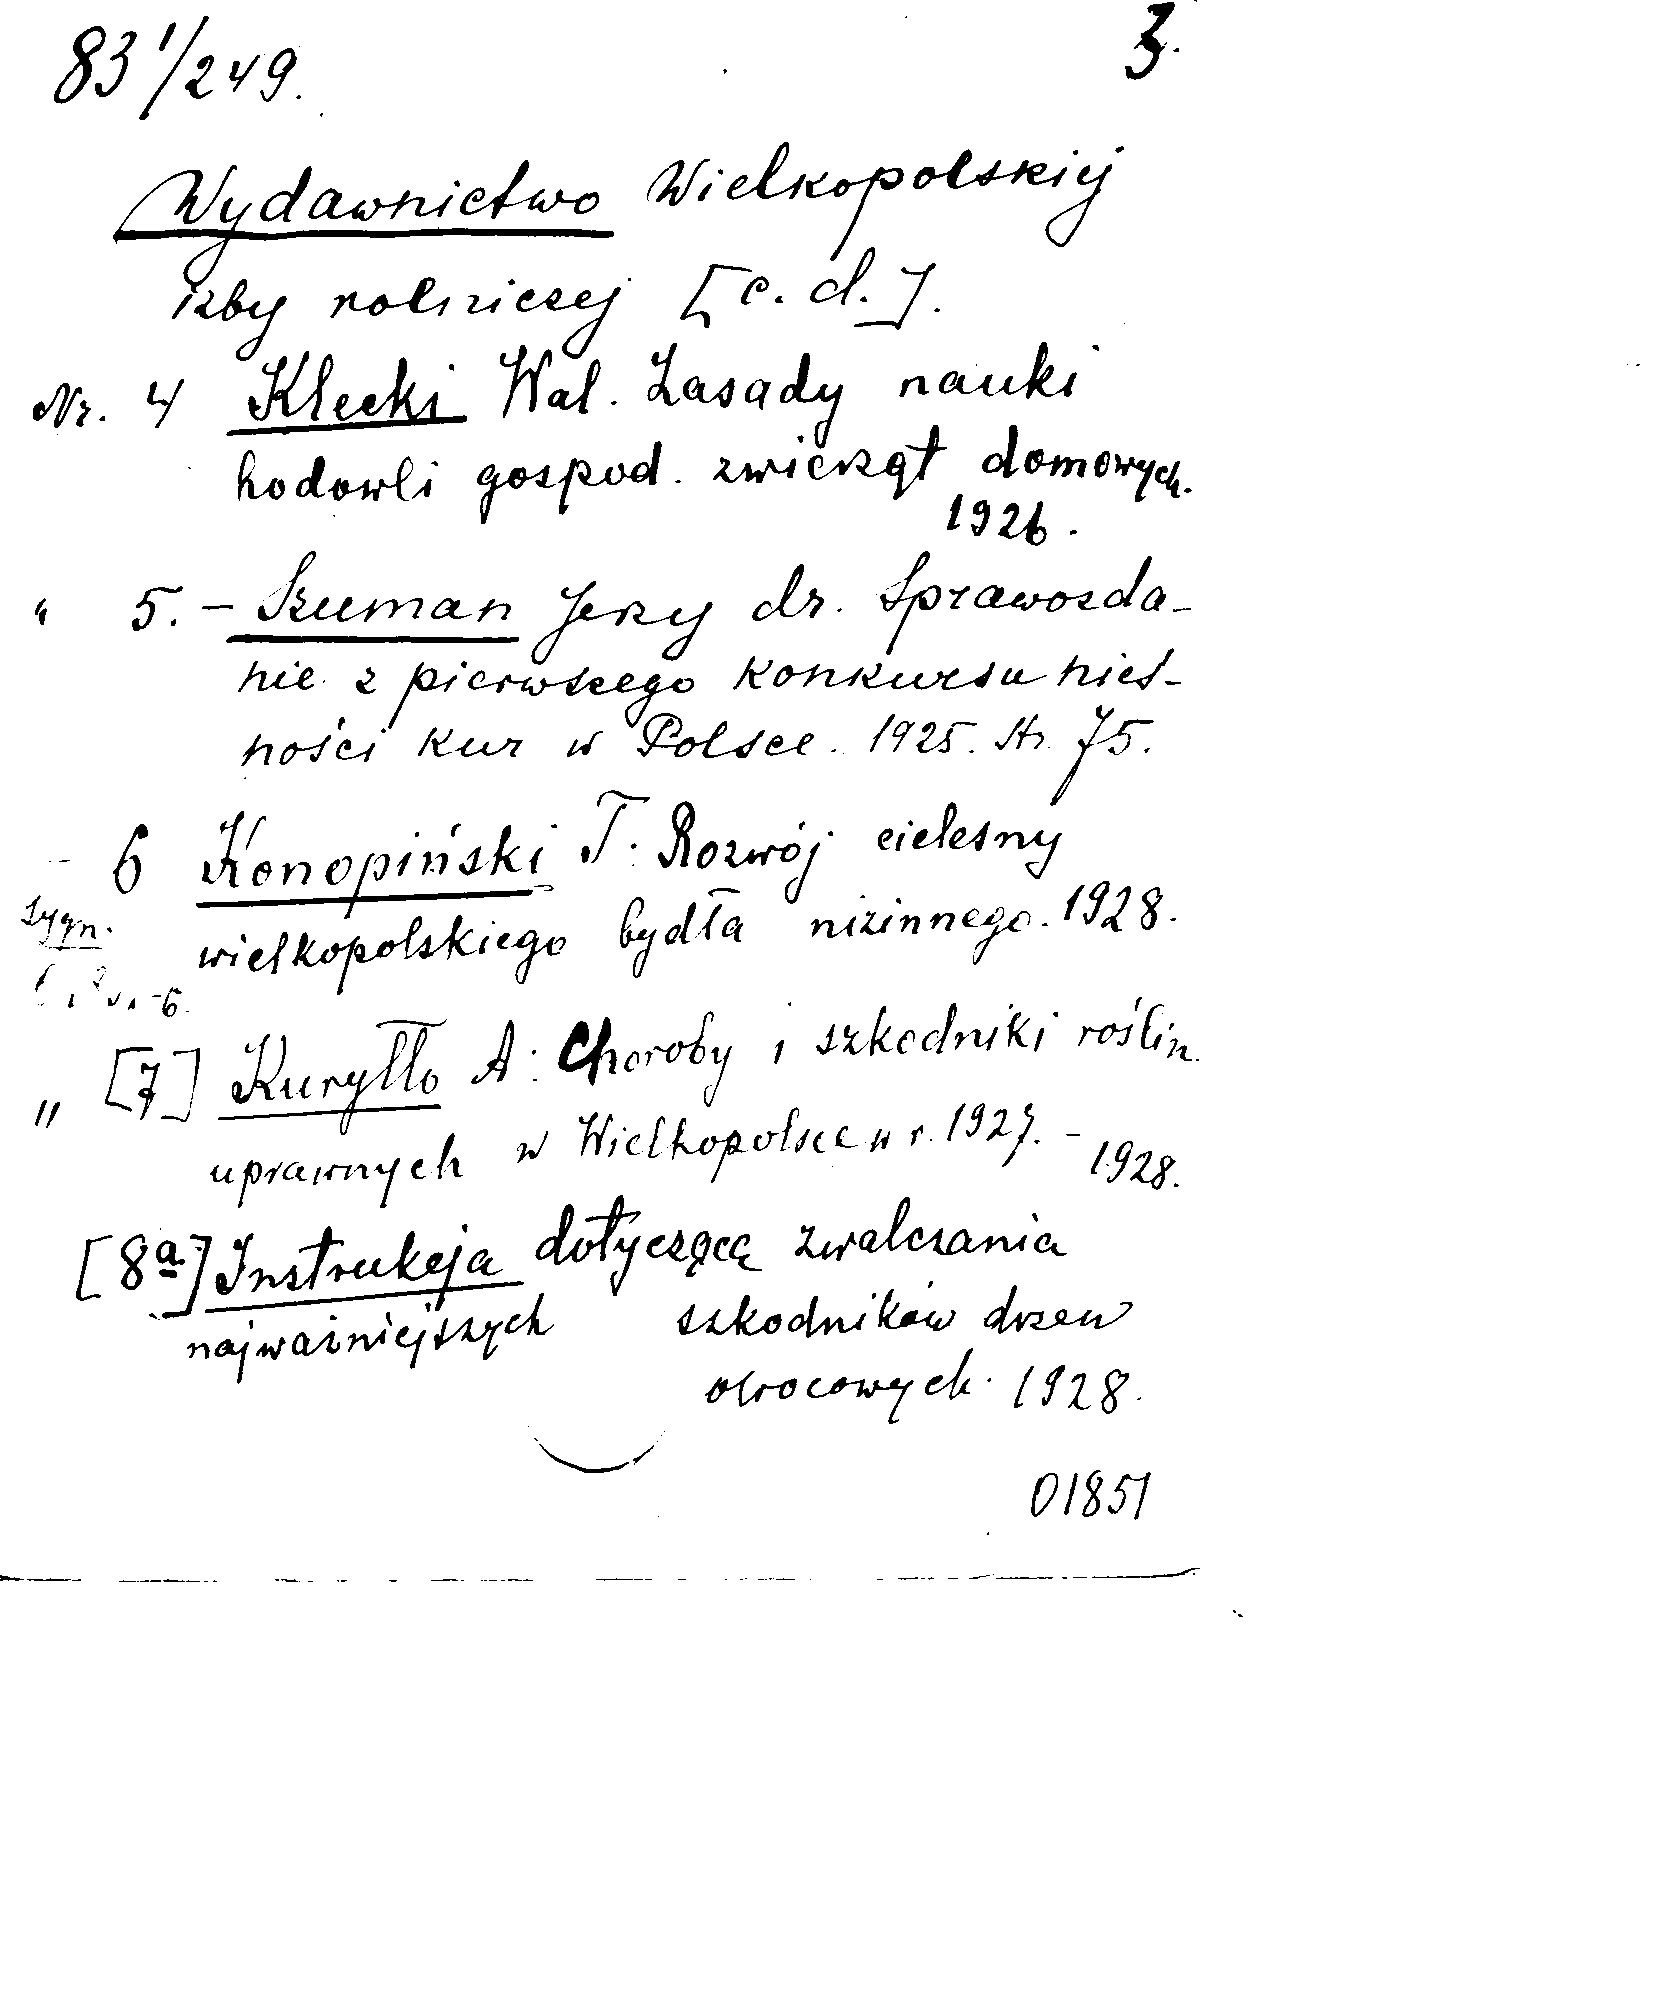 83 1/249. 3.
Wydawnictwo Wielkopolskiej
izby rolniczej [c. d.].
Nr. 4 Klecki Wal. Zasady nauki
hodowli gospod. zwierząt domowych.
1926.
" 5. - Szuman Jerzy dr. Sprawozda-
nie z pierwszego konkursu nieś-
ności kur w Polsce. 1925. str. 75.
- 6 Konopiński T. Rozwój cielesny
wielkopolskiego bydła nizinnego. 1928.
Sygn.
" [7] Kuryłło A: Choroby i szkodniki roślin
uprawnych w Wielkopolsce w r. 1927. -
1928.
[8a] Instrukcja dotycząca zwalczania
najważniejszych szkodników drzew
owocowych. 1928.
01851